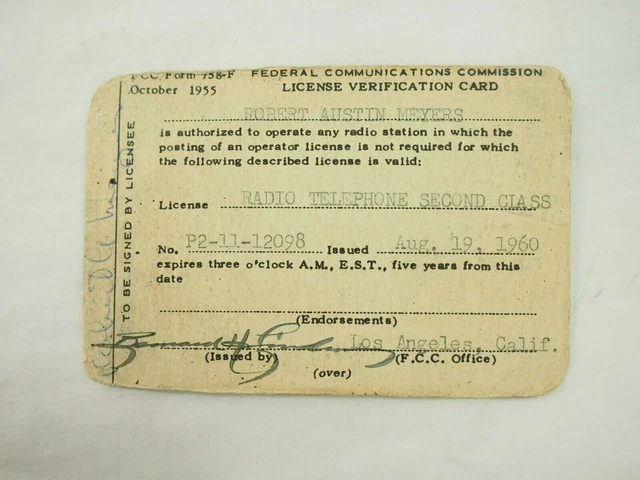 FCC Form 758-F FEDERAL COMMUNICATIONS COMMISSION
October 1955 LICENSE VERIFICATION CARD
ROBERT AUSTIN MEYERS
is authorized to operate any radio station in which the
posting of an operator license is not required for which
the following described license is valid:
License RADIO TELEPHONE SECOND CLASS
No. P2-11-12098 Issued Aug. 19, 1960
expires three o'clock A.M., E.S.T., five years from this
date
(Endorsements)
Bernard H. Los Angeles, Calif.
(Issued by) (F.C.C. Office)
(over)
TO BE SIGNED BY LICENSEE